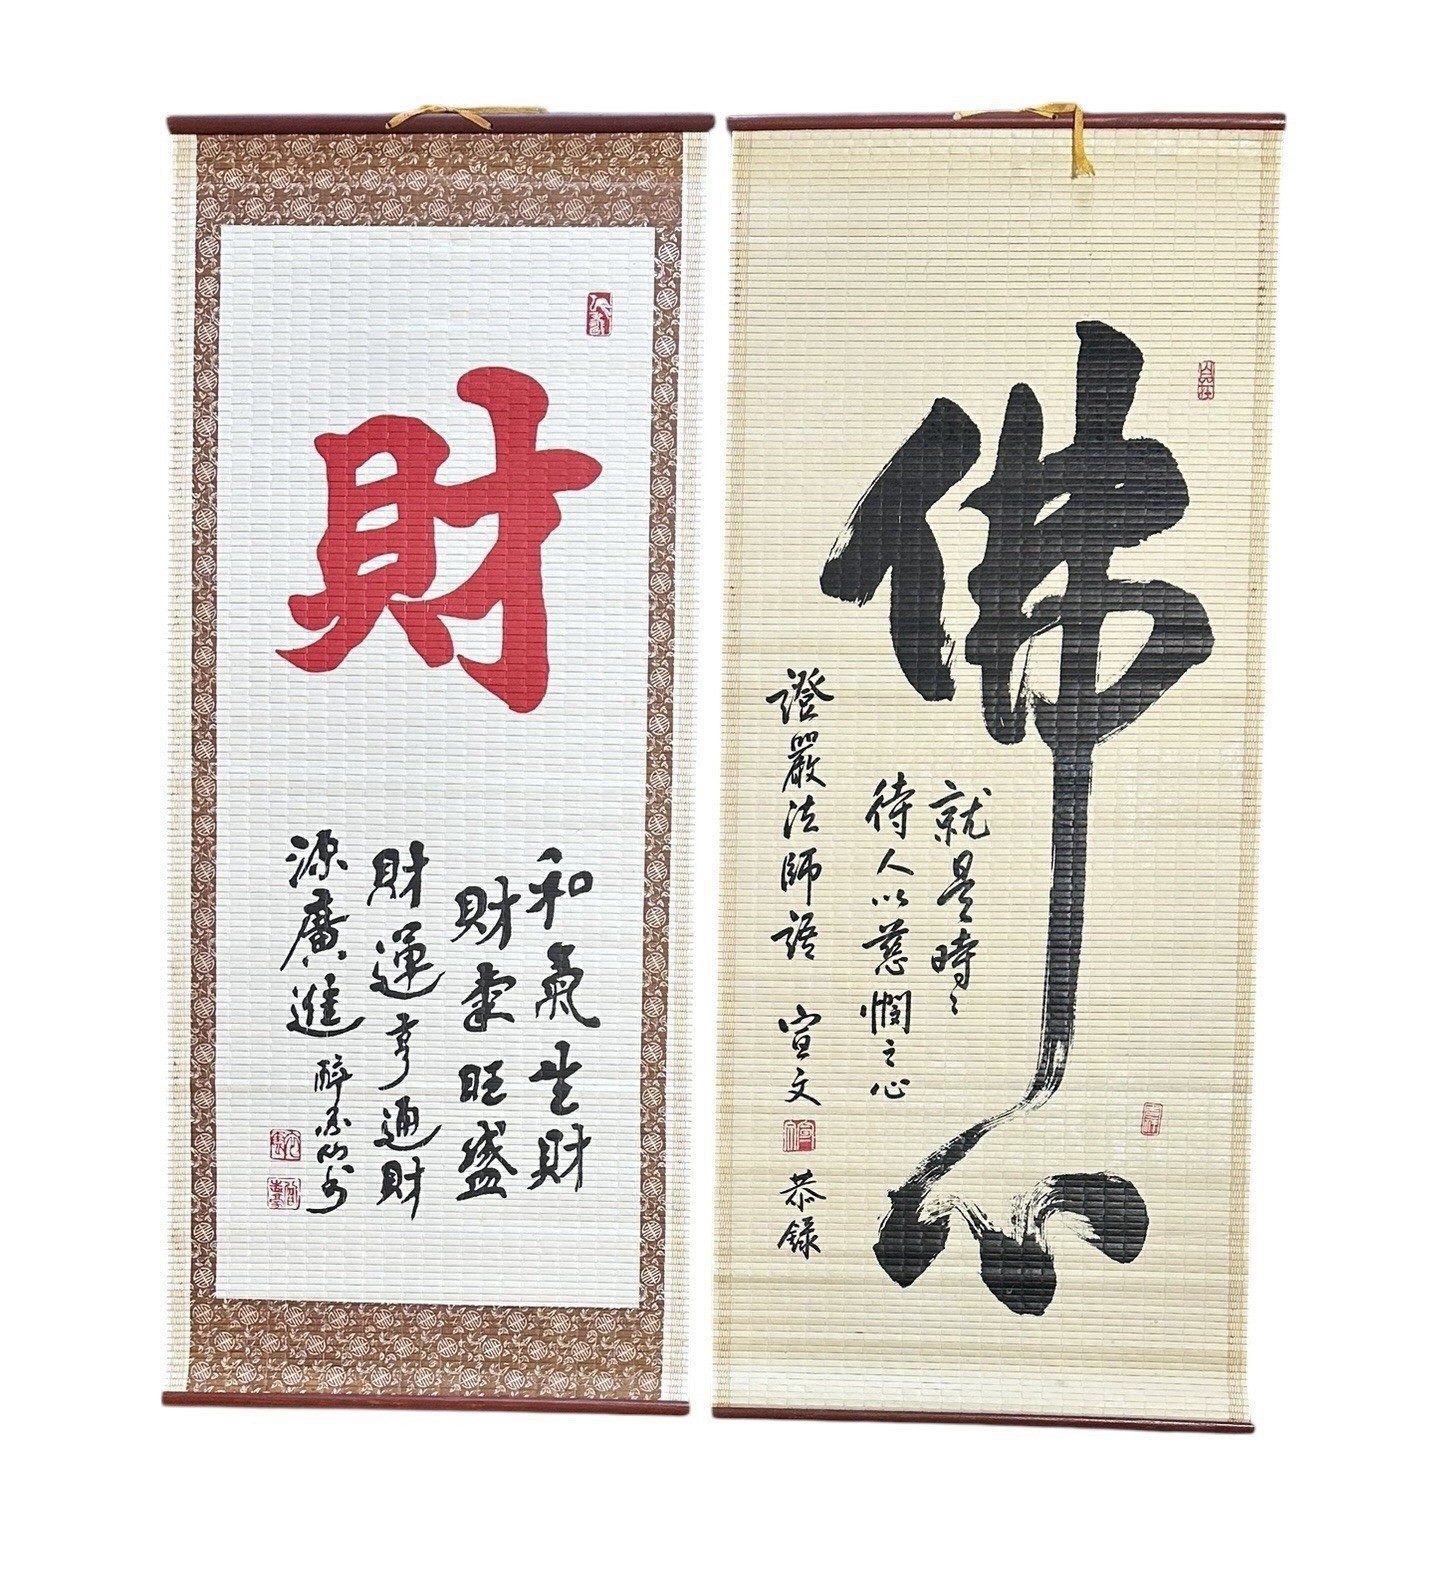 財
和氣生財
財氣旺盛
財運亨通財
源廣進
佛心
就是時時
待人以慈憫之心
證嚴法師語 宣文 恭錄